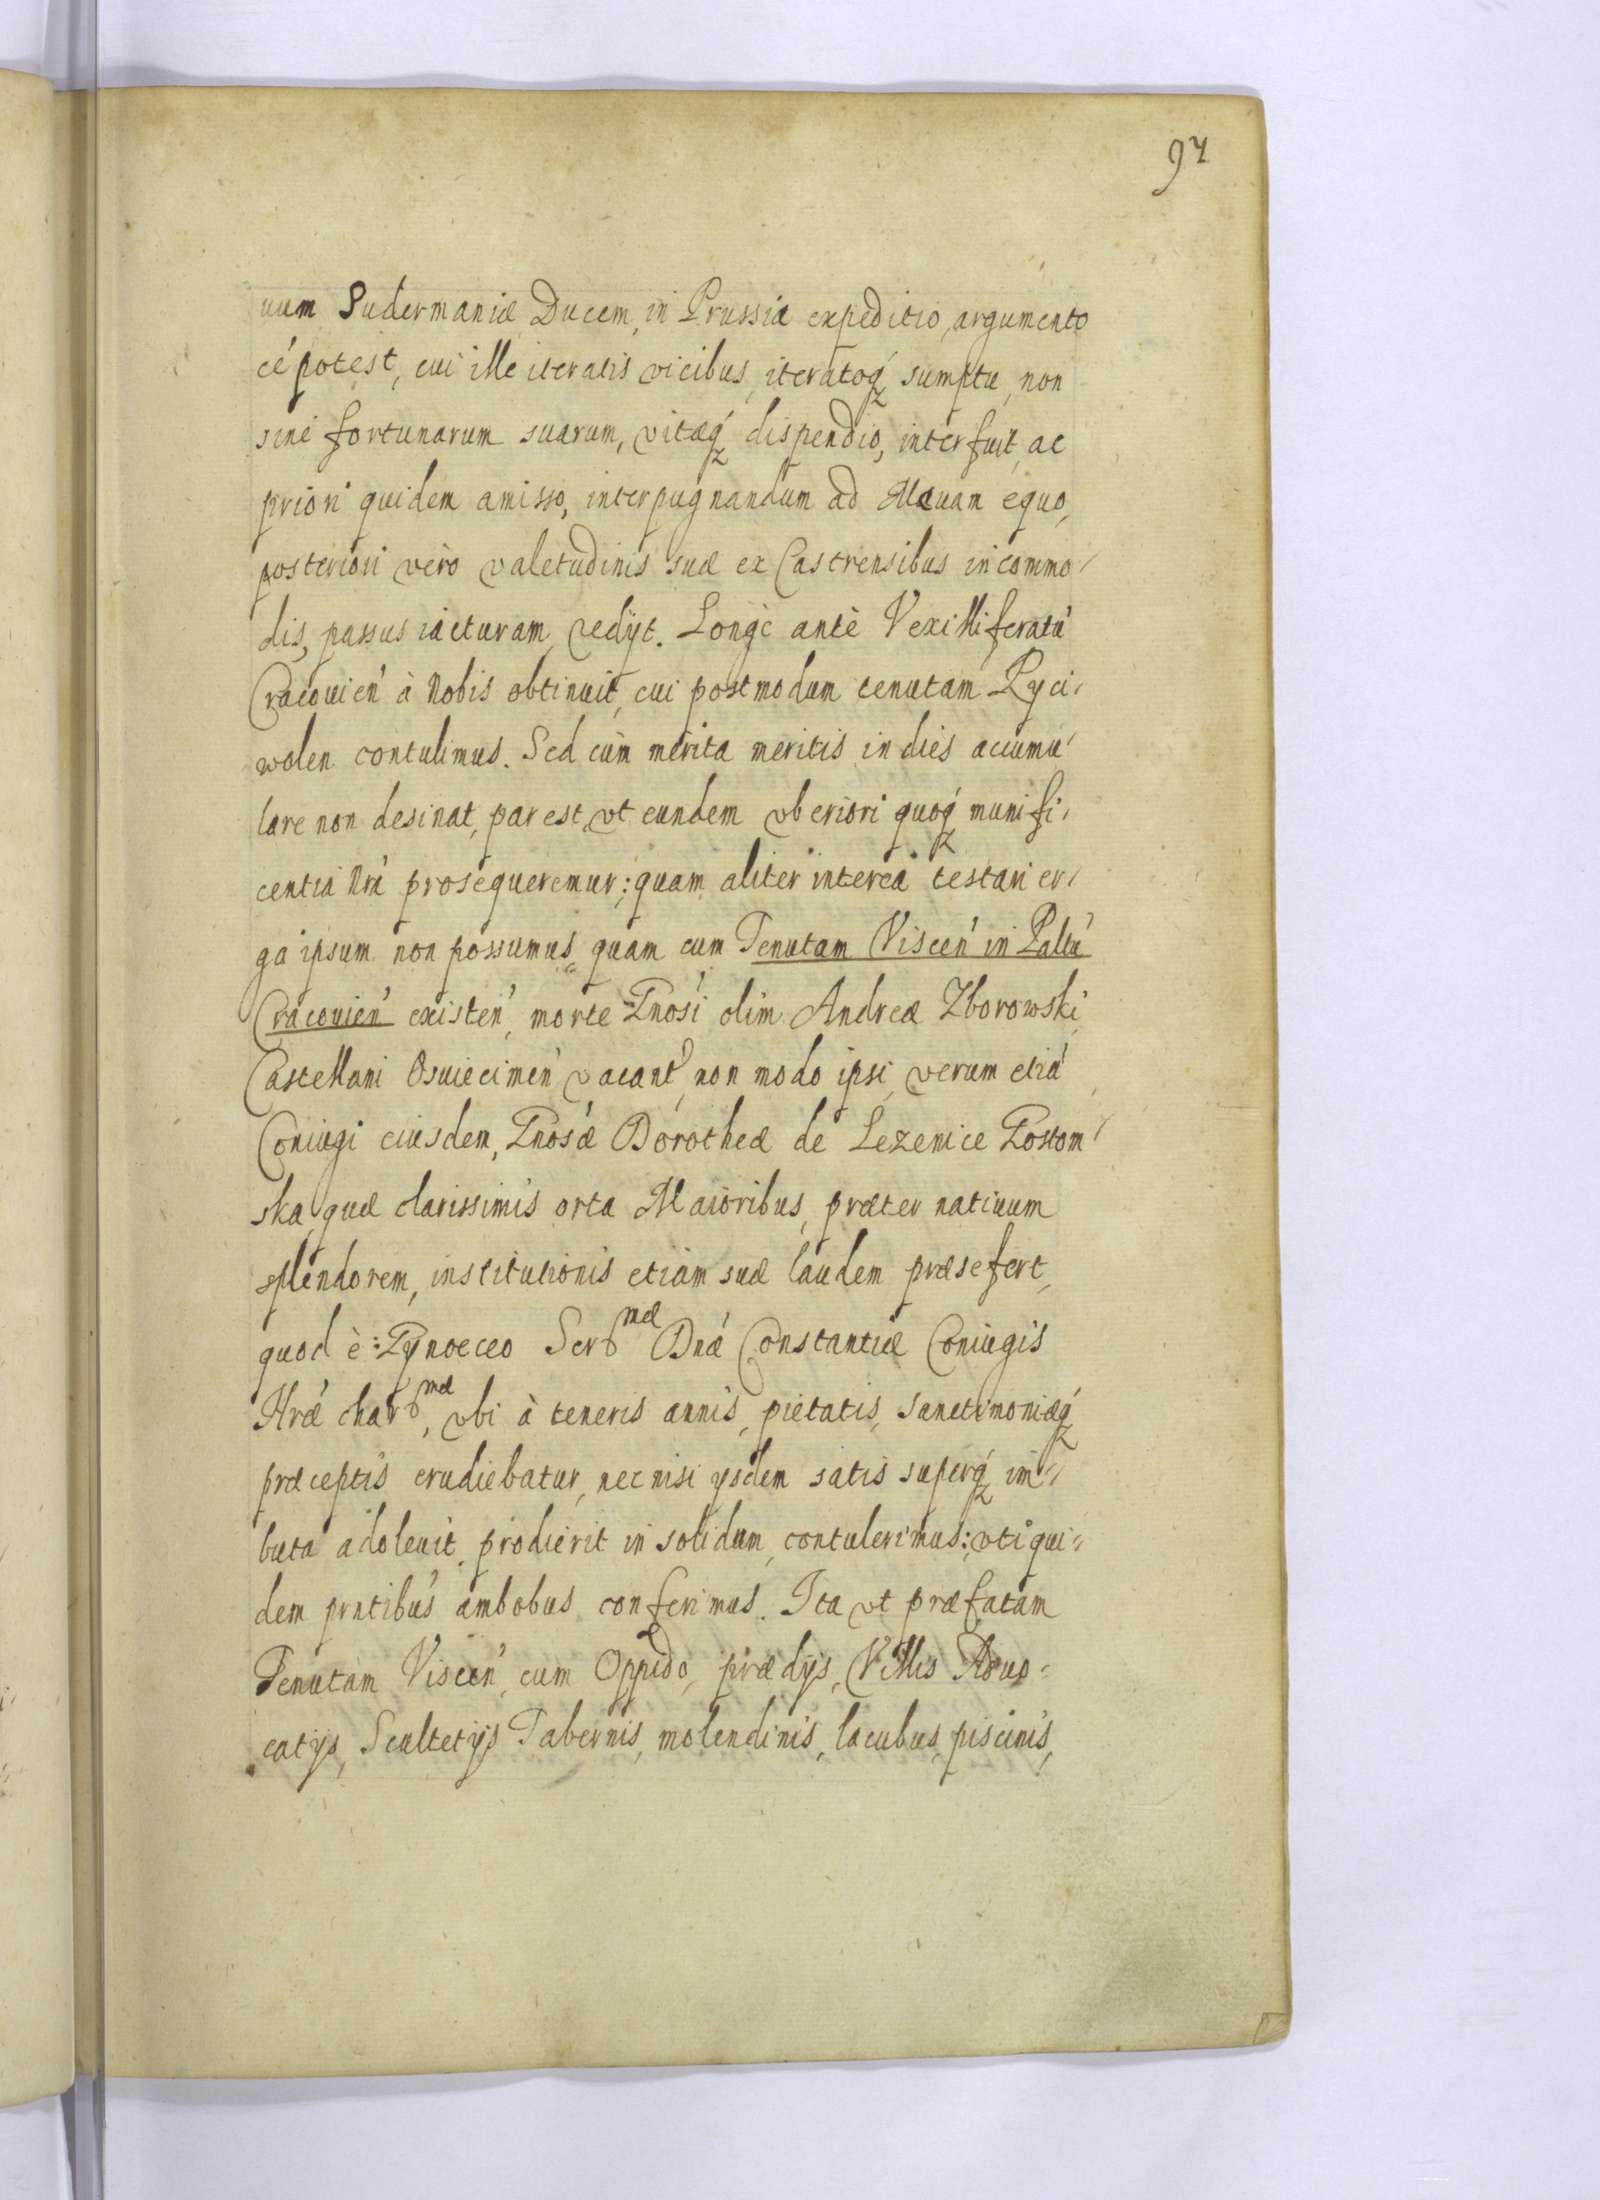 97
uum Sudermaniæ Ducem, in Prussia expeditio, argumento
ée potest, cui ille iteratis vicibus, iteratoq́ꝫ sumptu, non
sine fortunarum suarum, vitæq́ꝫ dispendio, interfuit, ac
priori quidem amisso, inter pugnandum ad Mæuam equo,
posteriori verò valetudinis suæ ex Castrensibus incommo/
dis, passus iacturam, redijt. Longè antè Vexilliferatú
Cracouień à Nobis obtinuit, cui postmodum tenutam Ryci/
wolen contulimus. Sed cùm merita meritis in dies accumu/
lare non desinat, par est, vt eundem vberiori quoq́ꝫ munifi/
centia Nrá prosequeremur; quam aliter interea testari er/
ga ipsum non possumus, quam cum Tenutam Viscen' in Paltú
Cracouień existeń, morte Gnosí olim Andreæ Zborowski,
Castellani Osuiecimeń vacant', non modo ipsi, verum etiá
Coniugi eiusdem, Gnosǽ Dorotheæ de Lezenice Postom/
ska, quæ clarissimis orta Maioribus, præter natiuum
splendorem, institutionis etiam suæ laudem præsefert,
quod è Gynoeceo Ser mæ Dnǽ Constantiæ Coniugis
Nrǽ char mæ, vbi à teneris annis, pietatis, sanctimoniæq́ꝫ
præceptis erudiebatur, nec nisi ysdem satis superq́ꝫ im/
buta adoleuit, prodierit in solidum, contulerimus; vti qui=
dem pntibus ambobus conferimus. Ita vt præfatam
Tenutam Visceń, cum Oppido, prædijs, Villis Aduo=
catijs, Scultetijs Tabernis, molendinis, lacubus, piscinis,